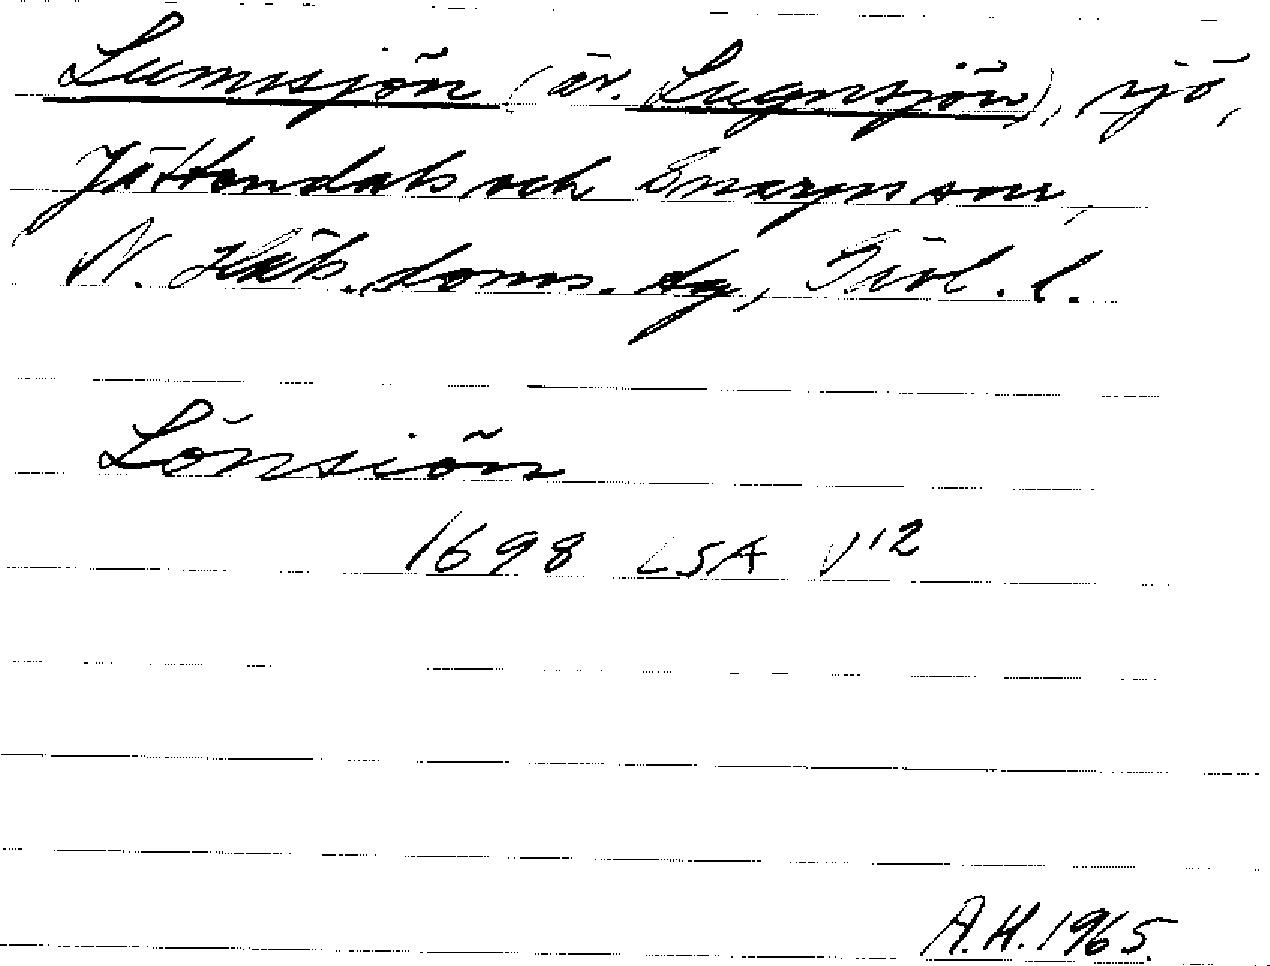 Lumsjön (äv. Lugnsjön), sjö,
Jättendals och Gnarps snr,
N. Häls. doms. dg, Gävl. l.
Lönsiön
1698 LSA V12
A.H. 1965.